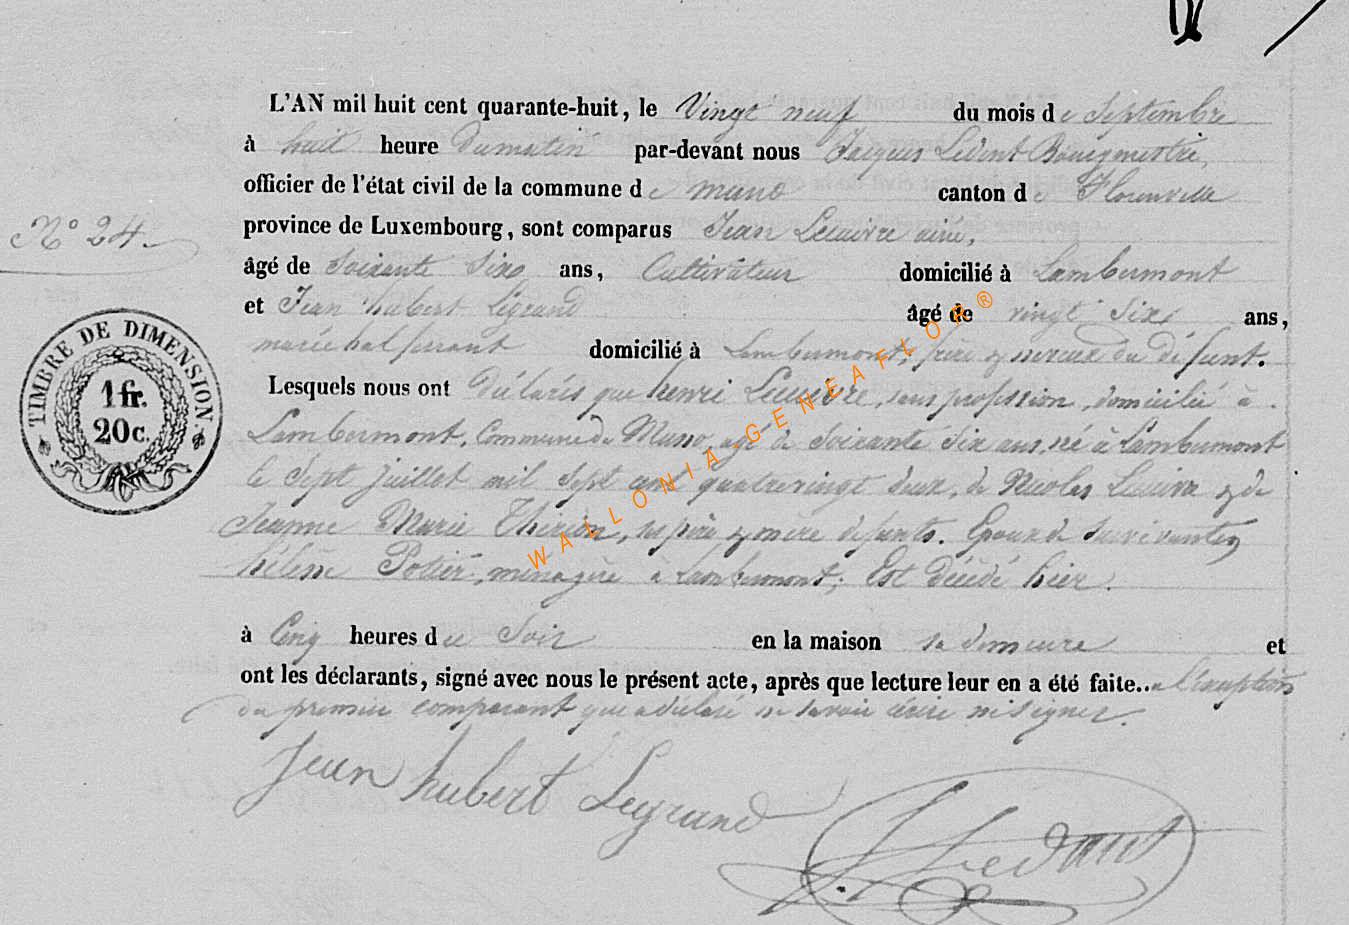 L'AN mil huit cent quarante-huit, le Vingt neuf du mois de Septembre
à huit heure du matin par-devant nous Jacques Ledent Bourgmestre,
officier de l'état civil de la commune de muno canton de Florenville
province de Luxembourg, sont comparus Jean Lecuivre ainé,
N° 24.
âgé de Soixante Six ans, Cultivateur domicilié à Lambermont
et Jean hubert Legrand âgé de vingt Six ans,
maréchal ferrant domicilié à Lambermont, frère & neveux du défunt.
Lesquels nous ont déclarés que henri Lecuivre, sans profession, domicilié à
Lambermont, Commune de Muno, agé de Soixante Six ans, né à Lambermont
le Sept juillet mil Sept cent quatrevingt deux, de Nicolas Lecuivre & de
Jeanne Marie Therion, ses père & mère défunts. Epoux de Survivante
hélène Potier, ménagère à Lambermont; Est Décédé hier.
à Cinq heures du Soir en la maison sa demeure et
ont les déclarants, signé avec nous le présent acte, après que lecture leur en a été faite.. a l'exception
du premier comparant que a déclaré ne savoir écrire ni signer.
Jean hubert Legrand
J Ledent
TIMBRE DE DIMENSION.
1 fr.
20 c.
WALLONIA-GENEAFLOR®